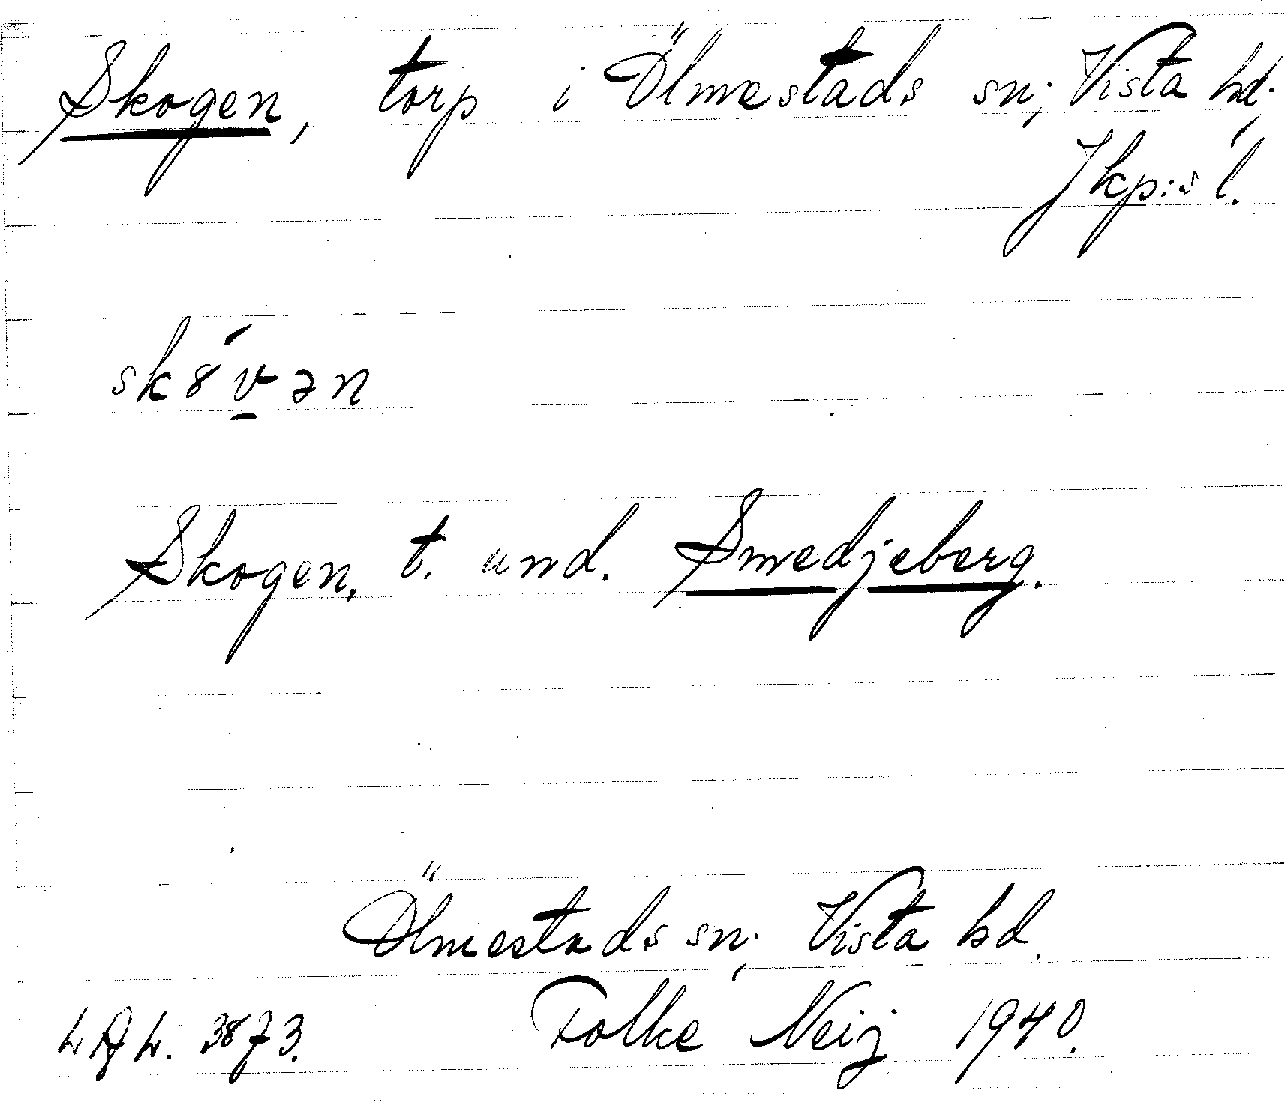 Skogen, torp i Ölmestads sn; Vista hd.
Jkp:s l.
sk8́v̲ən
Skogen, t. und. Smedjeberg.
Ölmestads sn; Vista hd.
Folke Neij 1940.
3873.